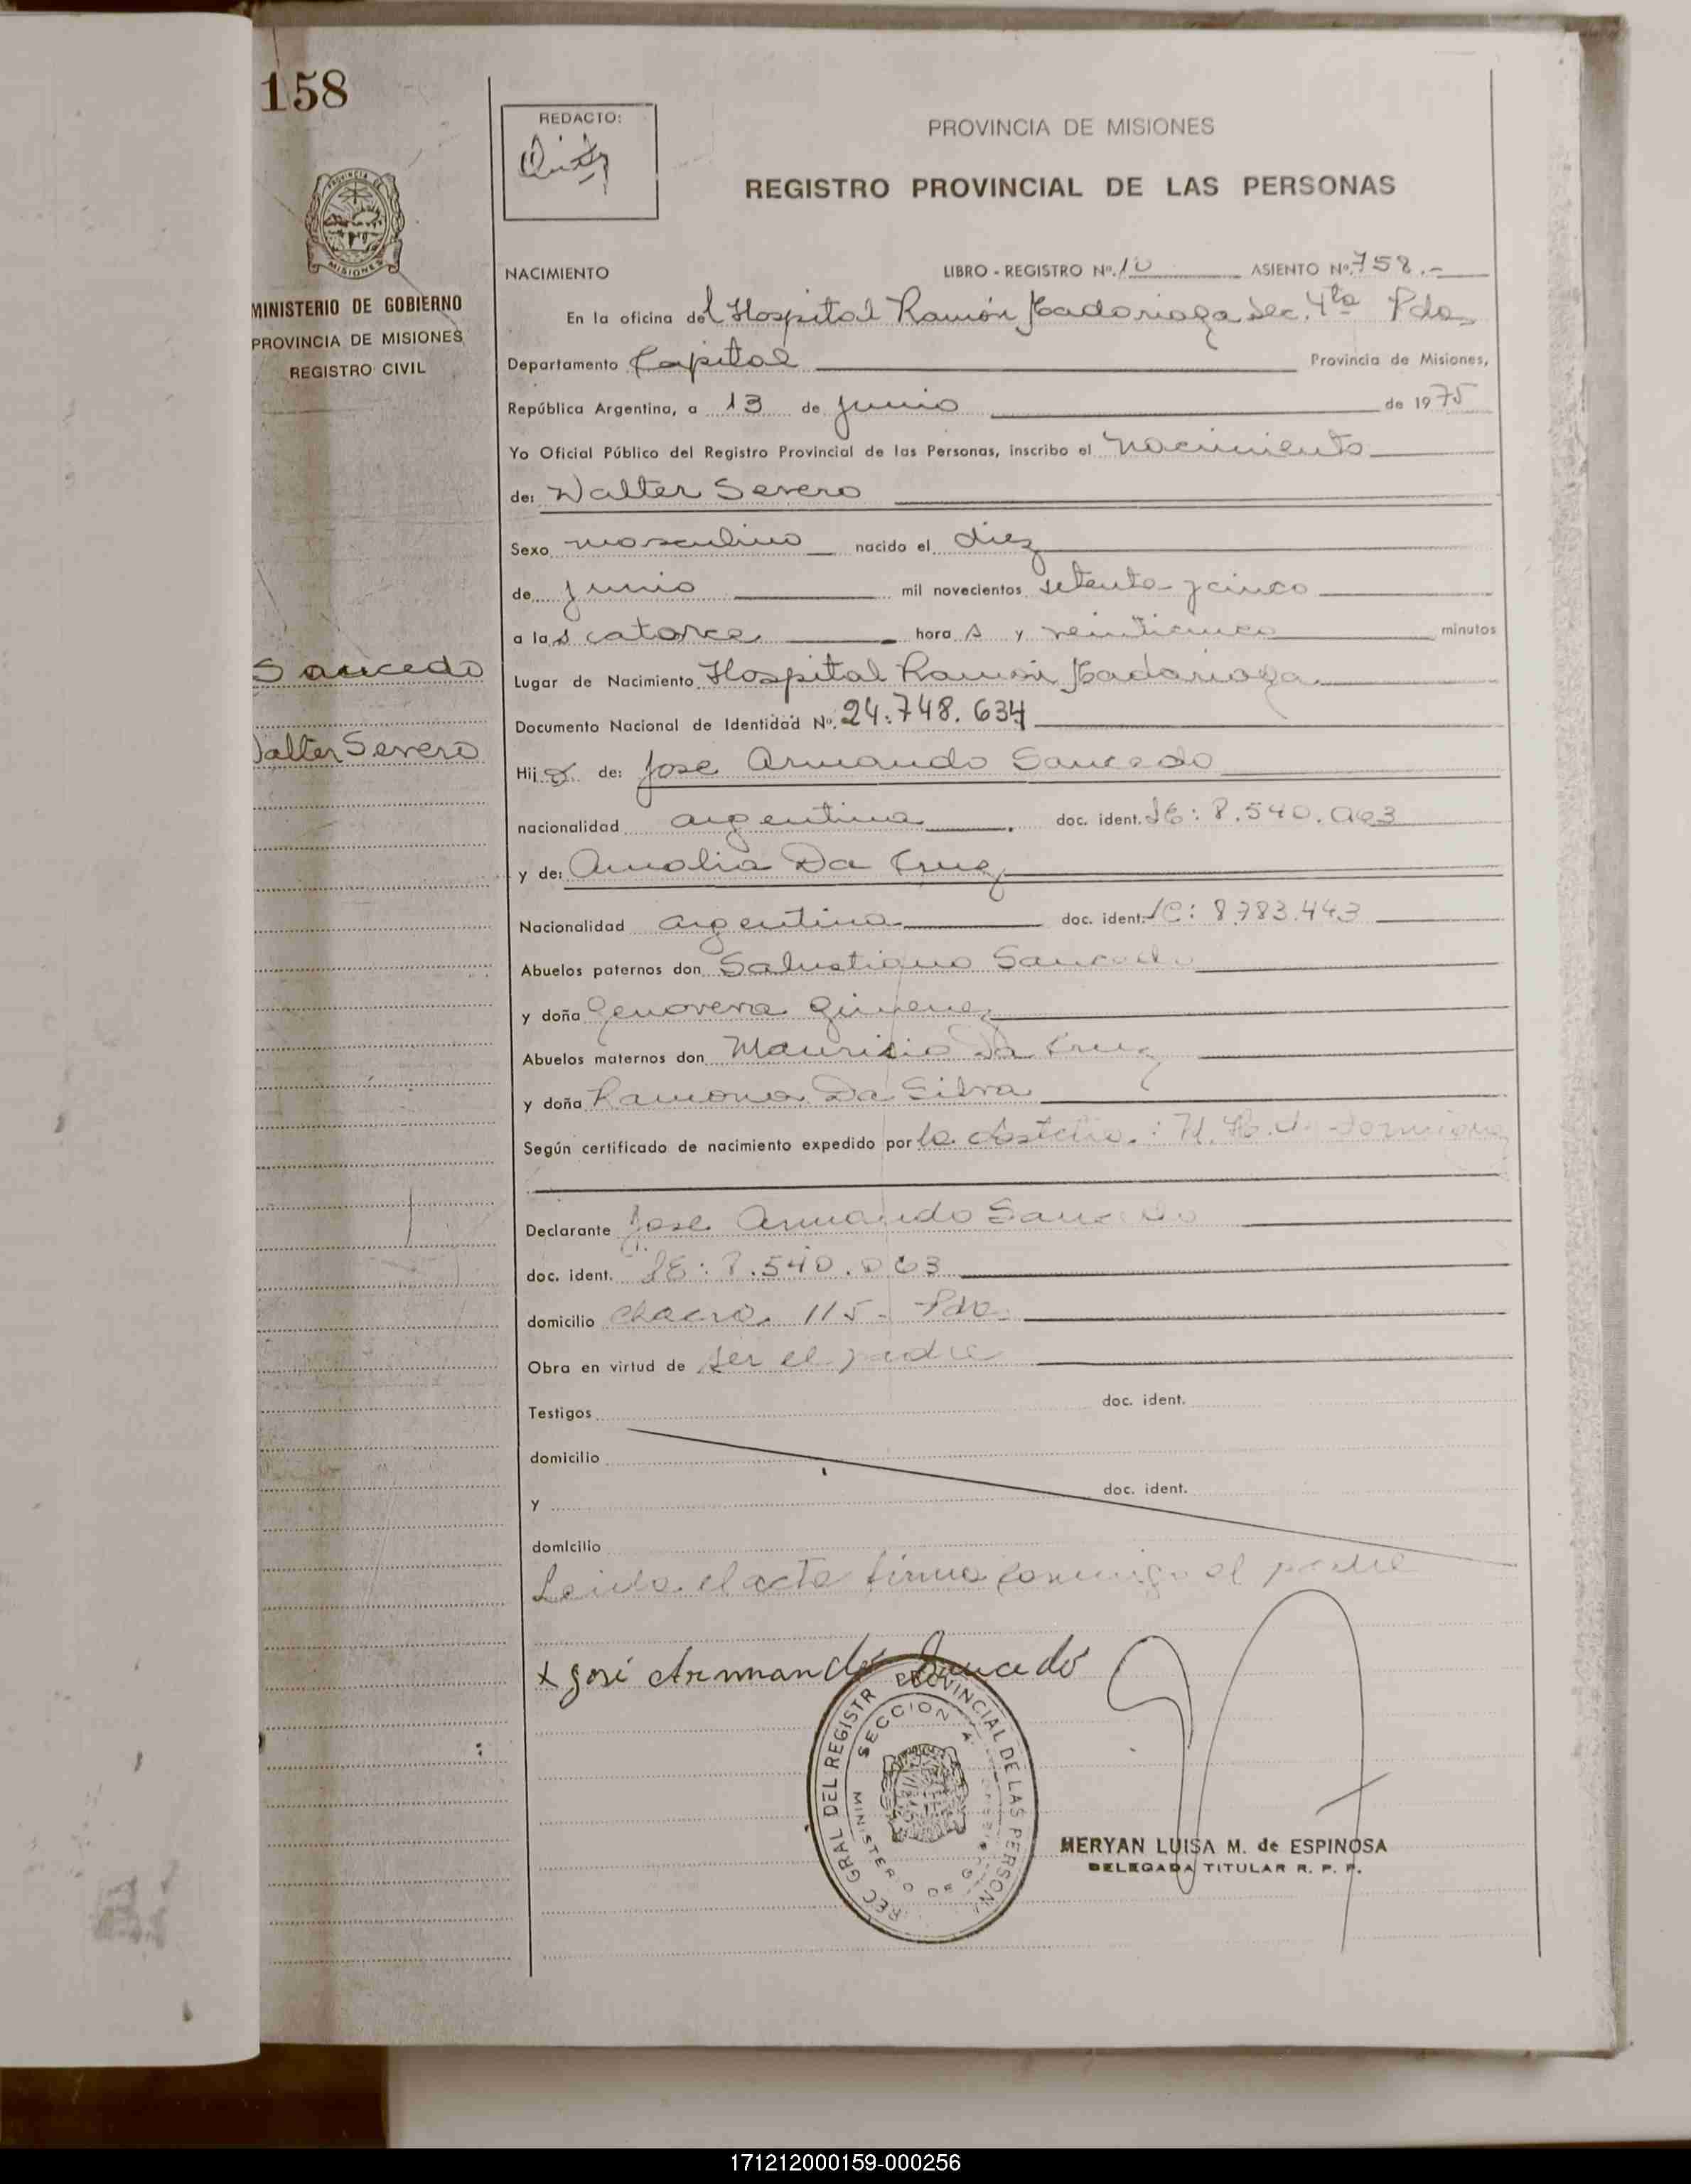 158
REDACTO:
PROVINCIA DE MISIONES
REGISTRO PROVINCIAL DE LAS PERSONAS
PROVINCIA DE
MISIONES
MINISTERIO DE GOBIERNO
PROVINCIA DE MISIONES
REGISTRO CIVIL
NACIMIENTO LIBRO - REGISTRO Nº. 10 ASIENTO Nº. 758.-
En la oficina del Hospital Ramón Madariaga Sec. 4ta Pdas
Departamento Capital Provincia de Misiones,
República Argentina, a 13 de junio de 1975
Yo Oficial Público del Registro Provincial de las Personas, inscribo el nacimiento
de: Walter Severo
Sexo masculino nacido el diez
de junio mil novecientos setenta y cinco
a las catorce horas y veinticinco minutos
Saucedo
Lugar de Nacimiento Hospital Ramón Madariaga
Documento Nacional de Identidad Nº. 24.748.634
Walter Severo
Hijo de: Jose Armando Saucedo
nacionalidad argentina doc. ident. LE: 8.540.063
y de: Amalia Da Cruz
Nacionalidad argentina doc. ident. LC: 8.783.443
Abuelos paternos don Salustiano Saucedo
y doña Genoveva Gimenez
Abuelos maternos don Mauricio Da Cruz
y doña Ramona Da Silva
Según certificado de nacimiento expedido por la obstetra.: H. de
Declarante Jose Armando Saucedo
doc. ident. LE: 8.540.063
domicilio chacra 115 - Pdas.
Obra en virtud de ser el padre
Testigos doc. ident.
domicilio
y doc. ident.
domicilio
Leida el acta firma conmigo el padre
x José Armando Saucedo
REC GRAL DEL REGISTR PROVINCIAL DE LAS PERSON
SECCION 4
MINISTERIO DE G
MERYAN LUISA M. de ESPINOSA
DELEGADA TITULAR R. P. P.
171212000159-000256